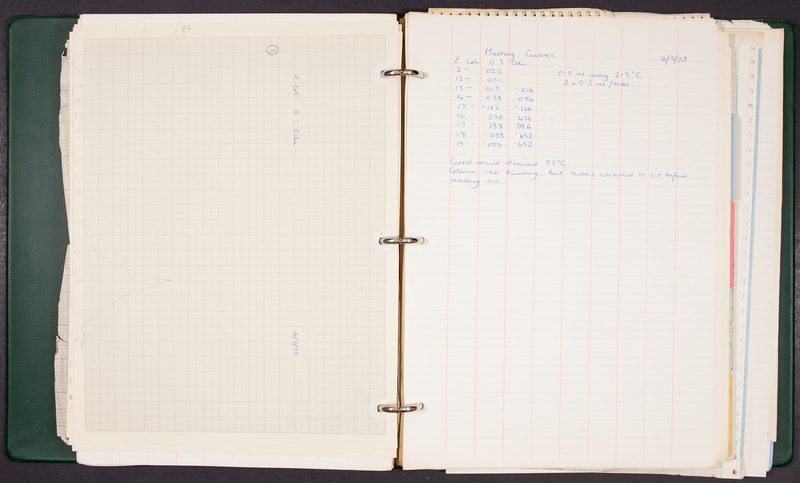 E. Coli 0.5 Odu.
16/5/73
Melting Curves.
16/5/73
E. Coli 0.5 Odu.
2 - .025
0.5 ml every 2.5°C.
12 - .001
2 x 0.5 ml / tube.
13 - .015 .016
14 - .033 .054
15 - .112 .166
16 - .290 .456
17 - .138 .594
18 - .053 .652
19 - .000 .652
Good result obtained 93°C.
Column still bleeding, but tubes allowed to sit before
reading O.D.